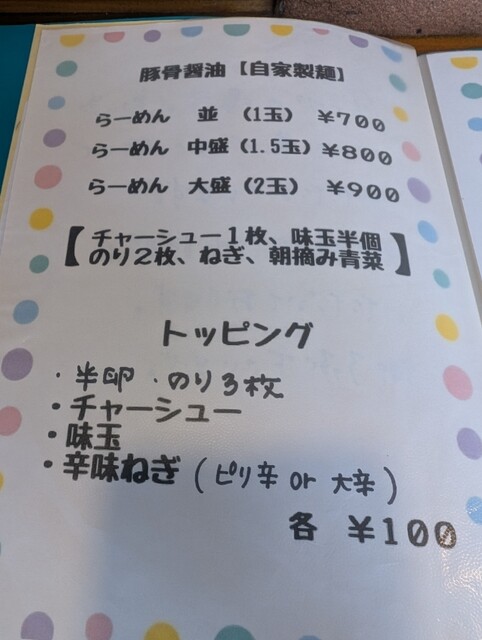 豚骨醤油【自家製麺】
らーめん 並 (1玉) ¥700
らーめん 中盛 (1.5玉) ¥800
らーめん 大盛 (2玉) ¥900
【チャーシュー1枚、味玉半個
のり2枚、ねぎ、朝摘み青菜】
トッピング
・半卵 ・のり3枚
・チャーシュー
・味玉
・辛味ねぎ (ピリ辛 or 大辛)
各 ¥100